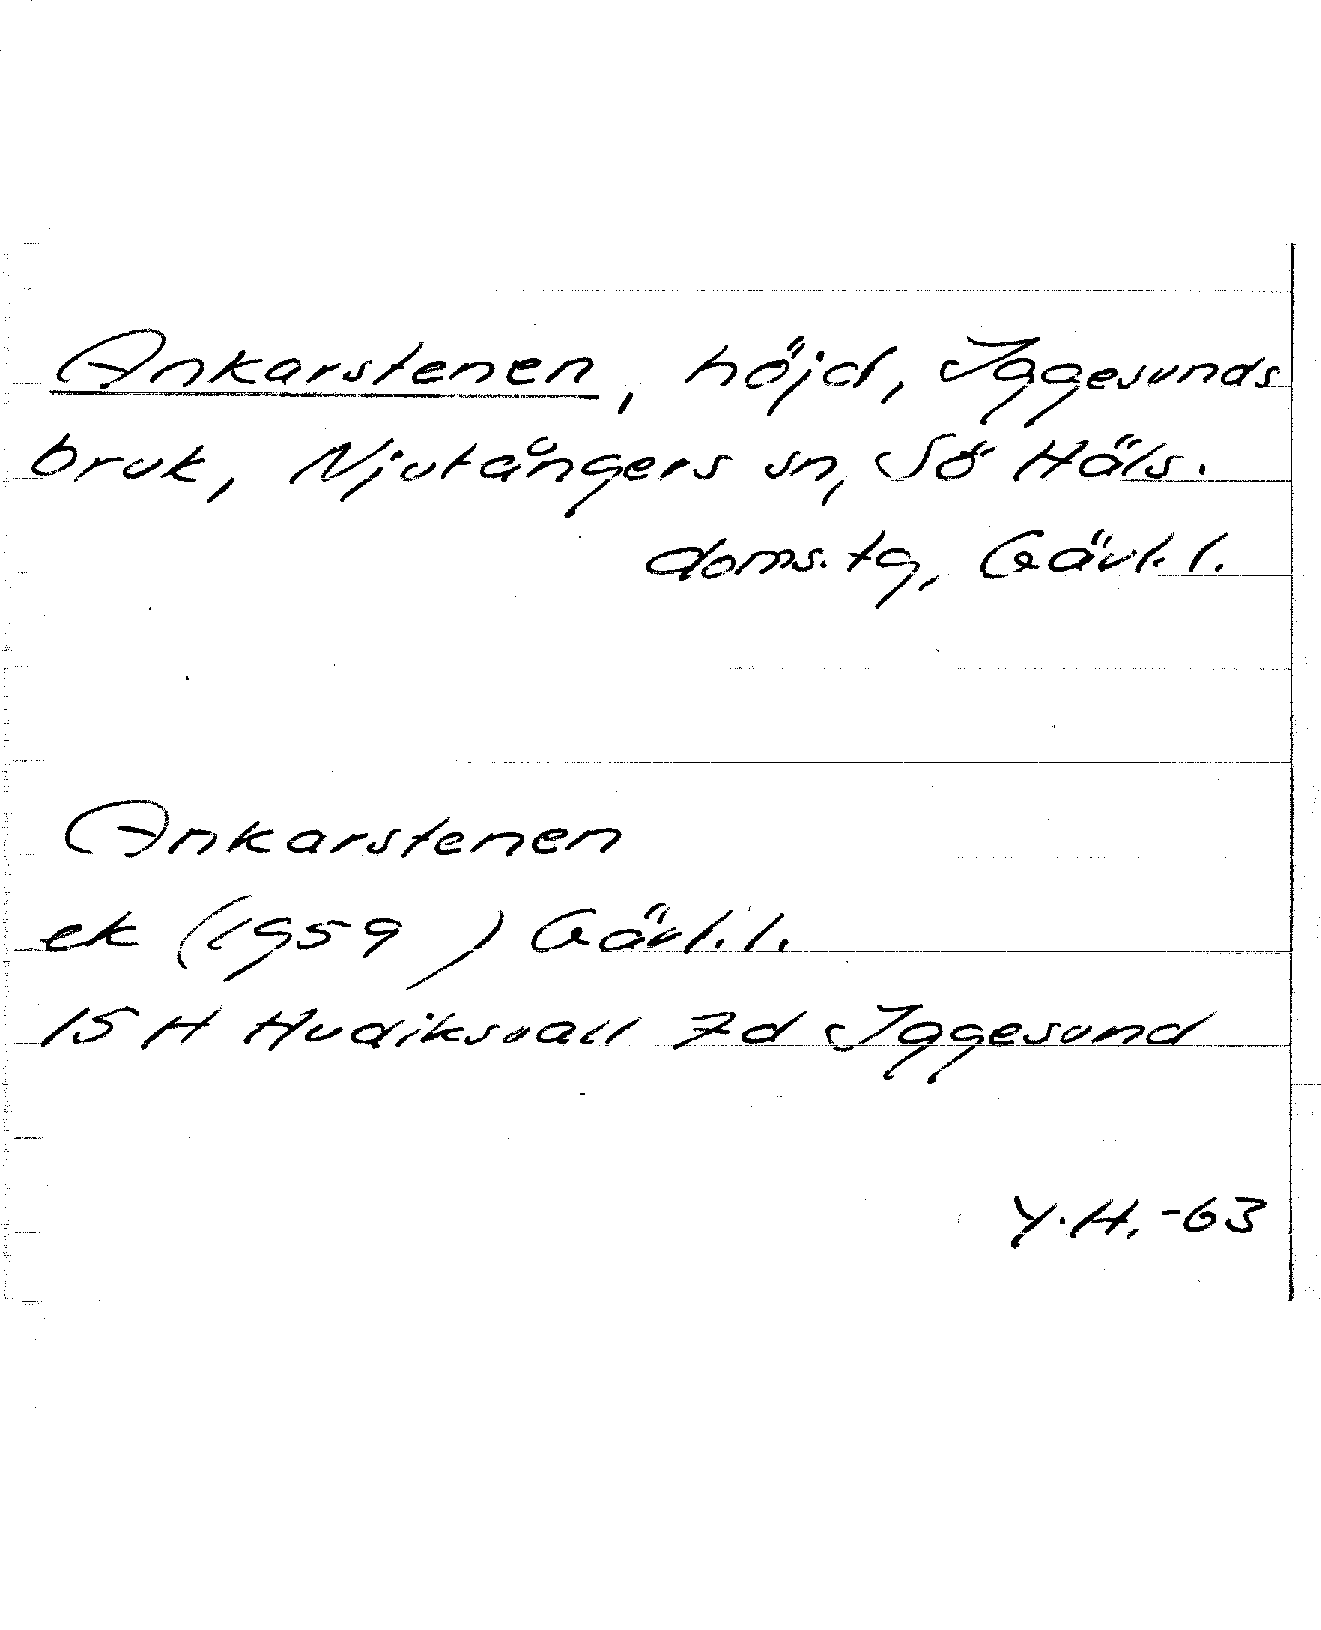 Ankarstenen, höjd, Iggesunds
bruk, Njutångers sn, Sö Häls.
doms. tg, Gävl. l.
Ankarstenen
ek (1959 ) Gävl. l.
15 H Hudiksvall 7d Iggesund
Y. H. -63